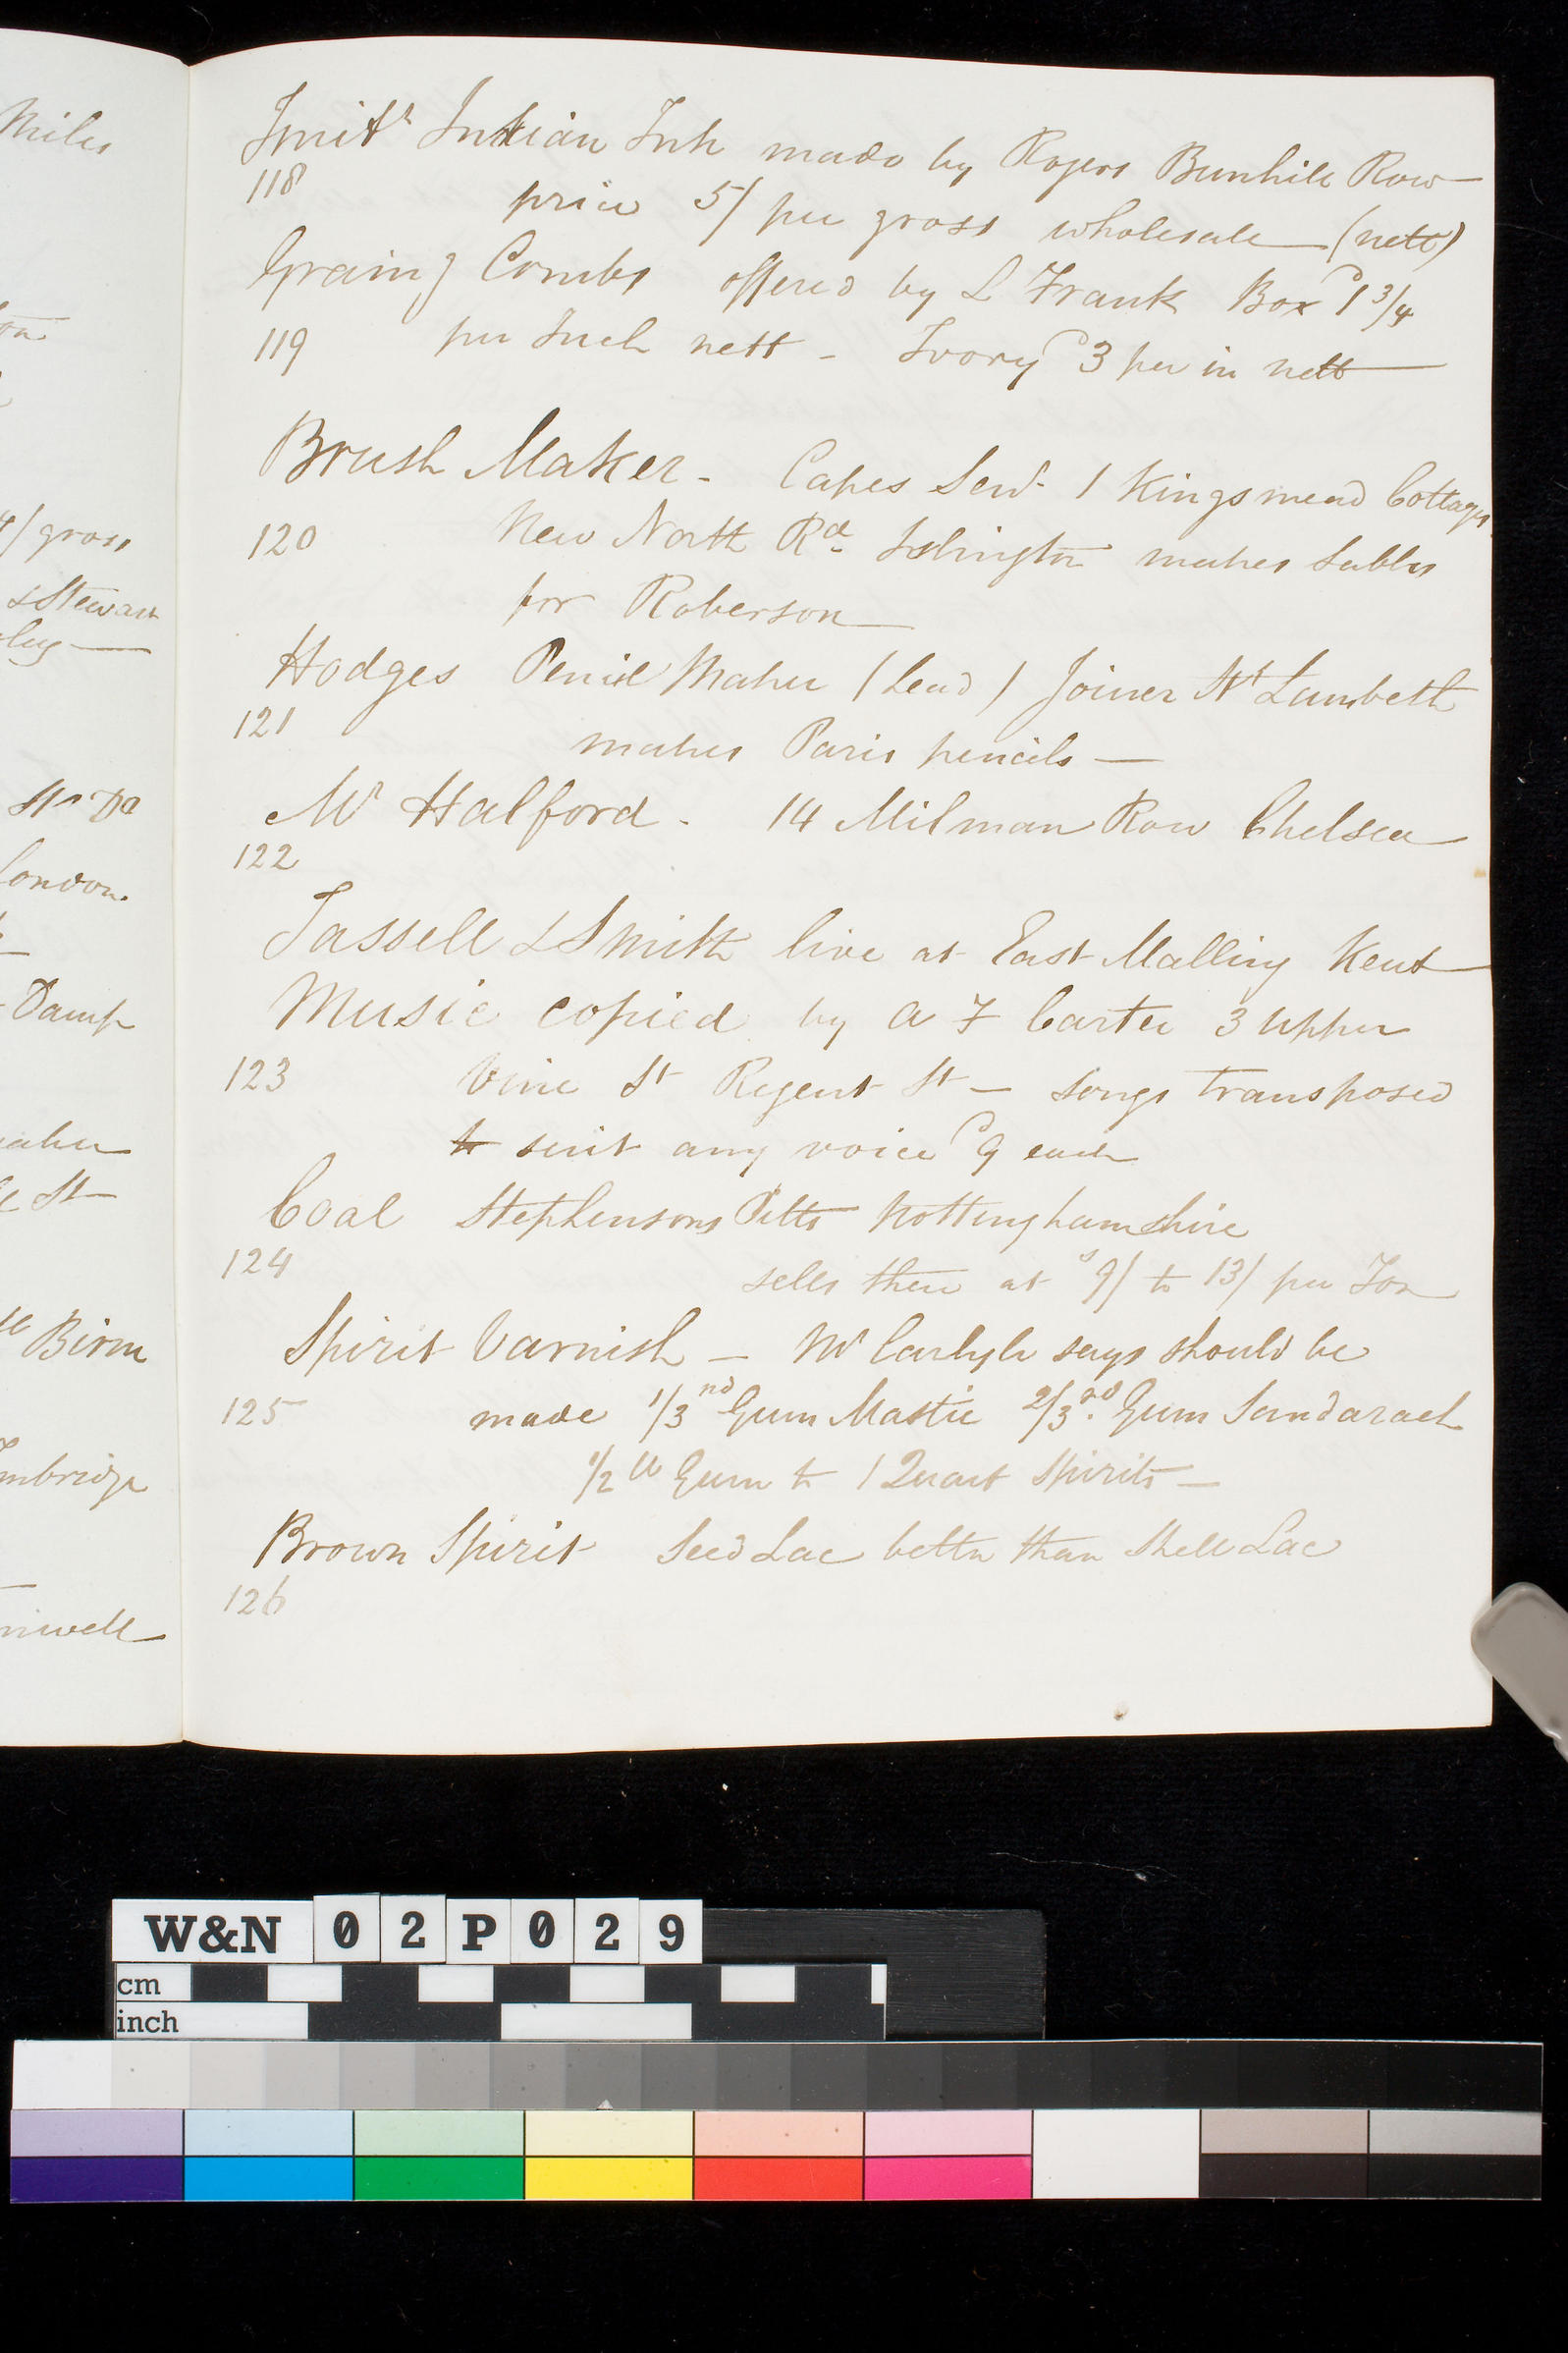 Miles
ton
4/ gross
& Stewart
ley —
London.
Damp
maker
St —
Birm
mbridge
niwell
Imitn Indian Ink made by Rogers Bunhill Row —
118 price 5/ per gross wholesale — (nett)
Graing Combs offered by L Frank Box d 1 3/4
119 per Inch nett - Ivory d 3 per in nett —
Brush Maker - Capes Senr 1 Kingsmead Cottages
120 New North Rd Islington makes Sables
for Roberson —
Hodges Pencil Maker (Lead) Joiner St Lambeth
121 makes Paris pencils —
Mr Halford - 14 Milman Row Chelsea
122
Tassell & Smith live at East Malling Kent
Music copied by A F Carter 3 Upper
123 Vine St Regent St — Songs transposed
to suit any voice d 9 each
Coal Stephensons Pitts Nottinghamshire
124 sells them at s 9/ to 13/ per Ton
Spirit Varnish — Mr Carlyle says should be
125 made 1/3 rd Gum Mastic 2/3 rds Gum Sandarach
1/2 lb Gum to 1 Quart Spirits —
Brown Spirit Seed Lac better than Shell Lac
126
W&N 02P029
cm
inch